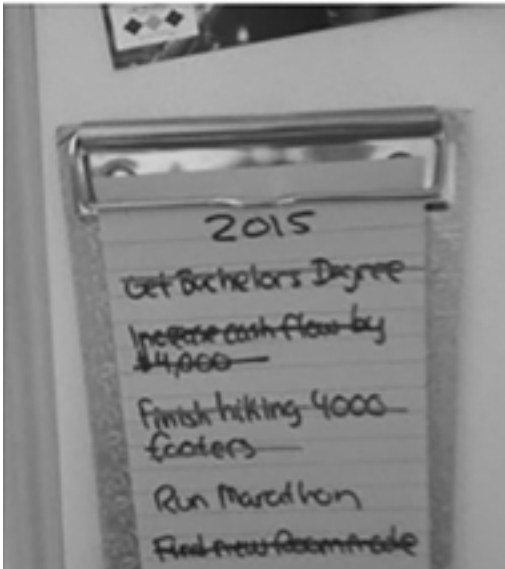 2015
Get Bachelors Degree
Increase cash flow by
$4,000
Finish hiking 4000
footers
Run Marathon
Find new Roommate